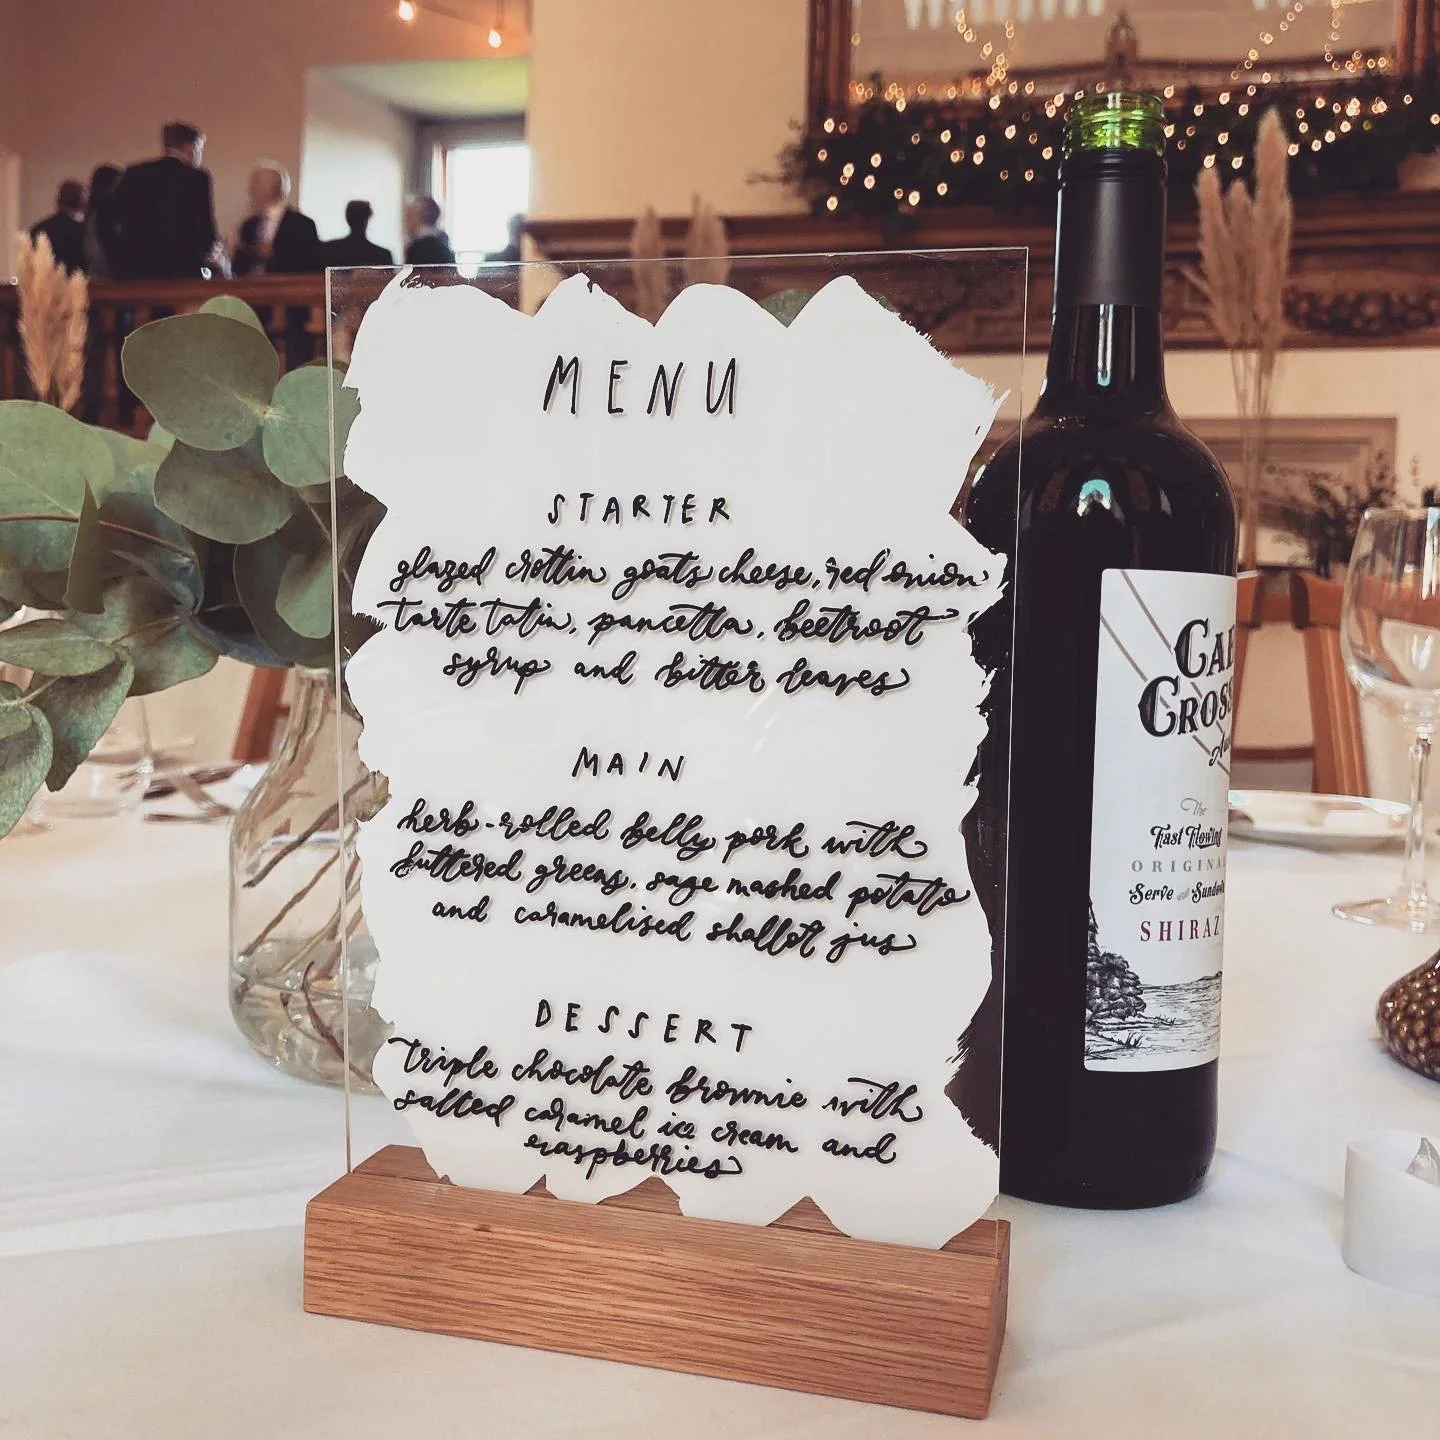 MENU
STARTER
glazed crottin goats cheese, red onion
tarte tatin, pancetta, beetroot
syrup and bitter leaves
MAIN
herb-rolled belly pork with
buttered greens, sage mashed potato
and caramelised shallot jus
DESSERT
triple chocolate brownie with
salted caramel ice cream and
raspberries
CROSS
The
Fast Flowing
ORIGINA
Serve
SHIRAZ